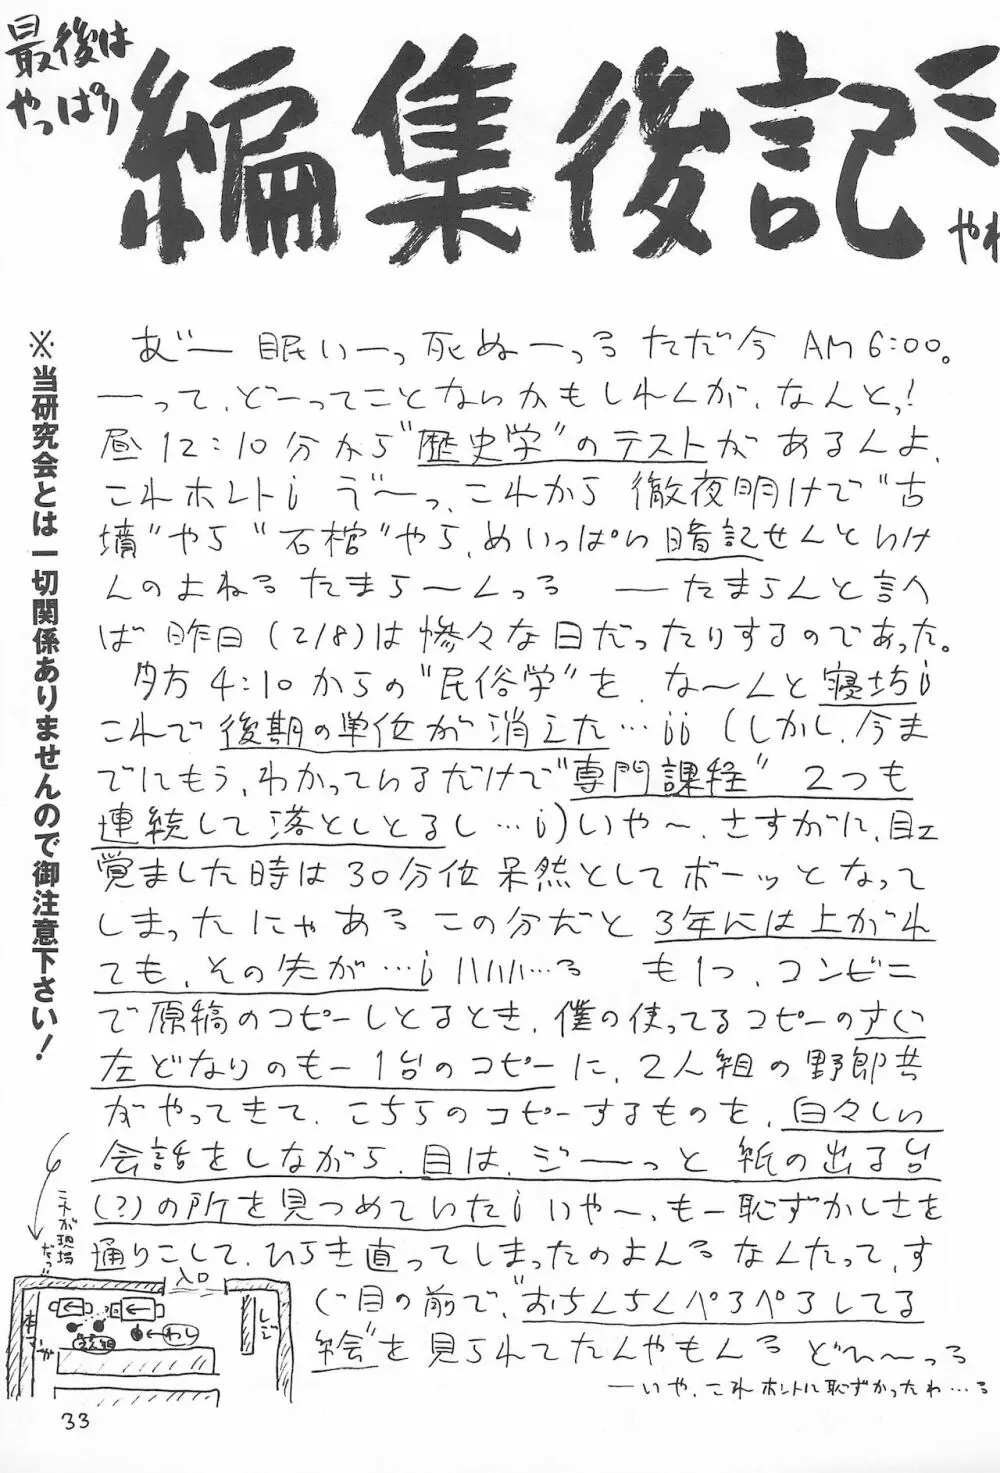 最後は
やっぱり
編集後記
やね
※当研究会とは一切関係ありませんので御注意下さい！
あ゛〜 眠いーっ 死ぬーっる ただ今 AM6:00。
ーって、どーってことないかもしれんが、なんとっ!
昼12:10分から"歴史学"のテストがあるんよ、
これホントi う゛〜っ、これから 徹夜明けで"古
墳"やら "石棺"やら、めいっぱい暗記せんといけ
んのよねる たまら〜んっる ーたまらんと言へ
ば 昨日 (2/8)は惨々な日だったりするのであった。
夕方 4:10からの"民俗学"を、な〜んと寝坊i
これで後期の単位が消えた…ii (しかし、今ま
でにもう、わかっているだけで"専門課程" 2つも
連続して落としとるし…i)いや〜、さすがに、目エ
覚ました時は30分位呆然としてボーッとなって
しまったにゃある この分だと3年には上がれ
ても、その先が…i ///////…る も1つ、コンビニ
で原稿のコピーしとるとき、僕の使ってるコピーのすぐ
左どなりのもー1台のコピーに、2人組の野郎共
がやってきて、こちらのコピーするものを、白々しい
会話をしながら、目は、ジーーっと 紙の出る台
(?)の所を見つめていたi いや〜、もー恥ずかしさを
通りこして、ひらき直ってしまったのよんる なんたって、す
ぐ目の前で、"おちんちんペろペろしてる
絵"を見られてたんやもんる どひ〜っる
ーいや、これホントに恥ずかったわ…る
これが現場
だっ!!
入口
本だな
2人組
わし
レジ
33